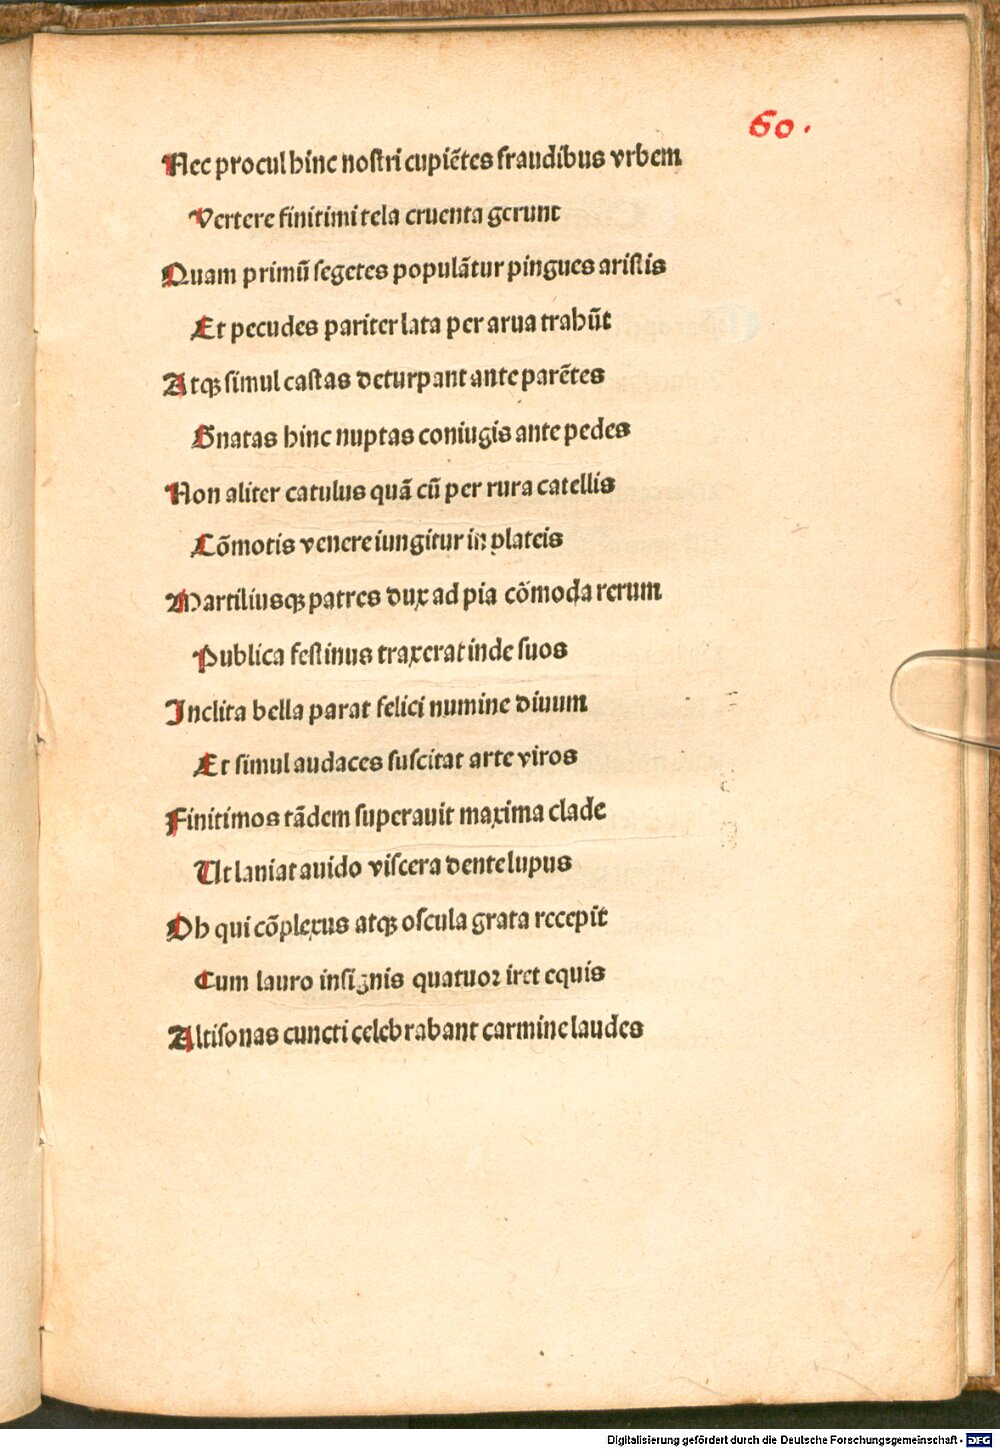 60.
Nec procul hinc noſtri cupiẽtes fraudibus vrbem
Vertere finitimi tela cruenta gerunt
Quam primũ ſegetes populãtur pingues ariſtis
Et pecudes pariter lata per arua trahũt
Atqꝫ ſimul caſtas deturpant ante parẽtes
Gnatas hinc nuptas coniugis ante pedes
Non aliter catulus quã cũ per rura catellis
Cõmotis venere iungitur in plateis
Martiliusqꝫ patres dux ad pia cõmoda rerum
Publica feſtinus traxerat inde ſuos
Inclita bella parat felici numine diuum
Et ſimul audaces ſuſcitat arte viros
Finitimos tãdem ſuperauit maxima clade
Ut laniat auido viſcera dente lupus
Ob qui cõplexus atqꝫ oſcula grata recepit
Cum lauro inſignis quatuoꝛ iret equis
Altiſonas cuncti celebrabant carmine laudes
Digitalisierung gefördert durch die Deutsche Forschungsgemeinschaft - DFG